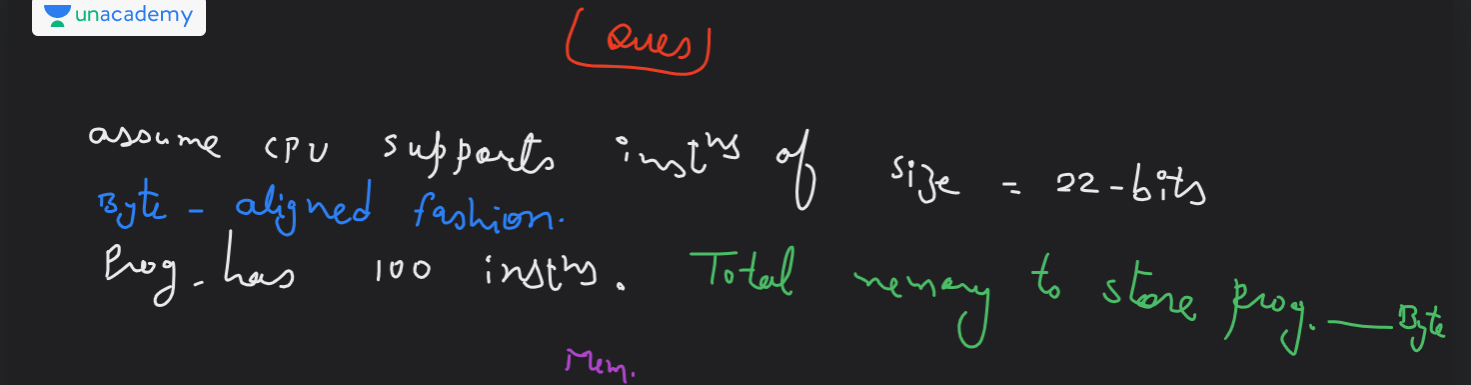 unacademy
Ques
assume CPU supports instns of size = 22-bits
Byte - aligned fashion.
Prog. has 100 instns. Total memory to store prog. ___ Byte
Mem.